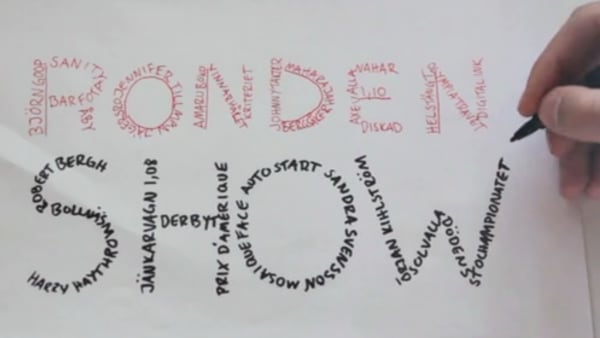 BJÖRN GOOP
SANITY
BARFOTA
JENNIFER TILLMAN
JÄGERSRO
AMARU BOKO
VINNARHUVA
KRITERIET
JOHNNY TAKTER
MAHARAJAH
BERGSÅKER
AXEVALLA
VAHAR
1,10
DISKAD
HELSINGFORS
OLYMPIATRAVET
DIGITAL INK
ROBERT BERGH
BOLLNÄS
HARRY HAYTHROW
JÄNKARVAGN 1,08
DERBYT
PRIX D'AMÉRIQUE
FACE AUTOSTART SANDRA SVENSSON MOSAIQUE
ÖRJAN KIHLSTRÖM
SOLVALLA
DÖDENS
STOCHAMPIONATET